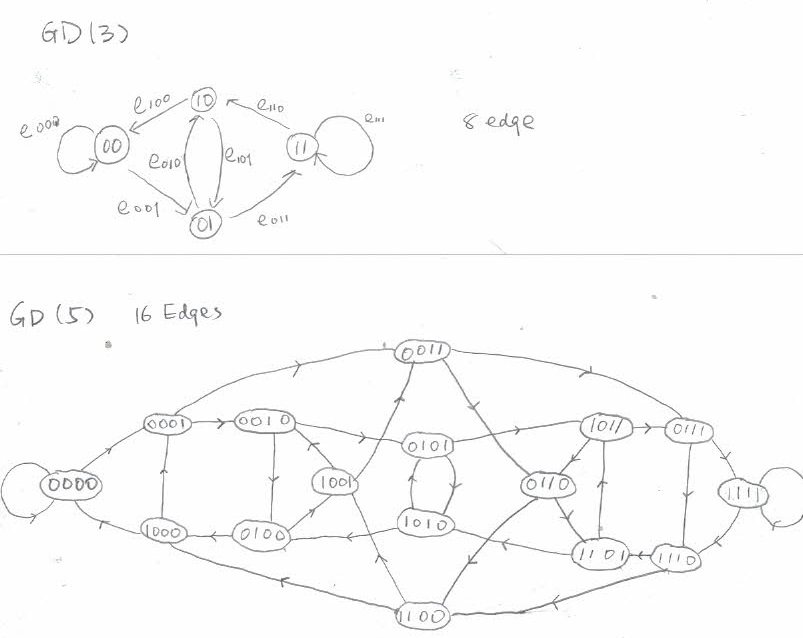 GD(3)
e100 10 e110
e000 00 e010 e101 11 e111 8 edge
e001 01 e011
GD(5) 16 Edges
0011
0001 0010 0101 1011 0111
0000 1001 0110 1111
1000 0100 1010 1101 1110
1100